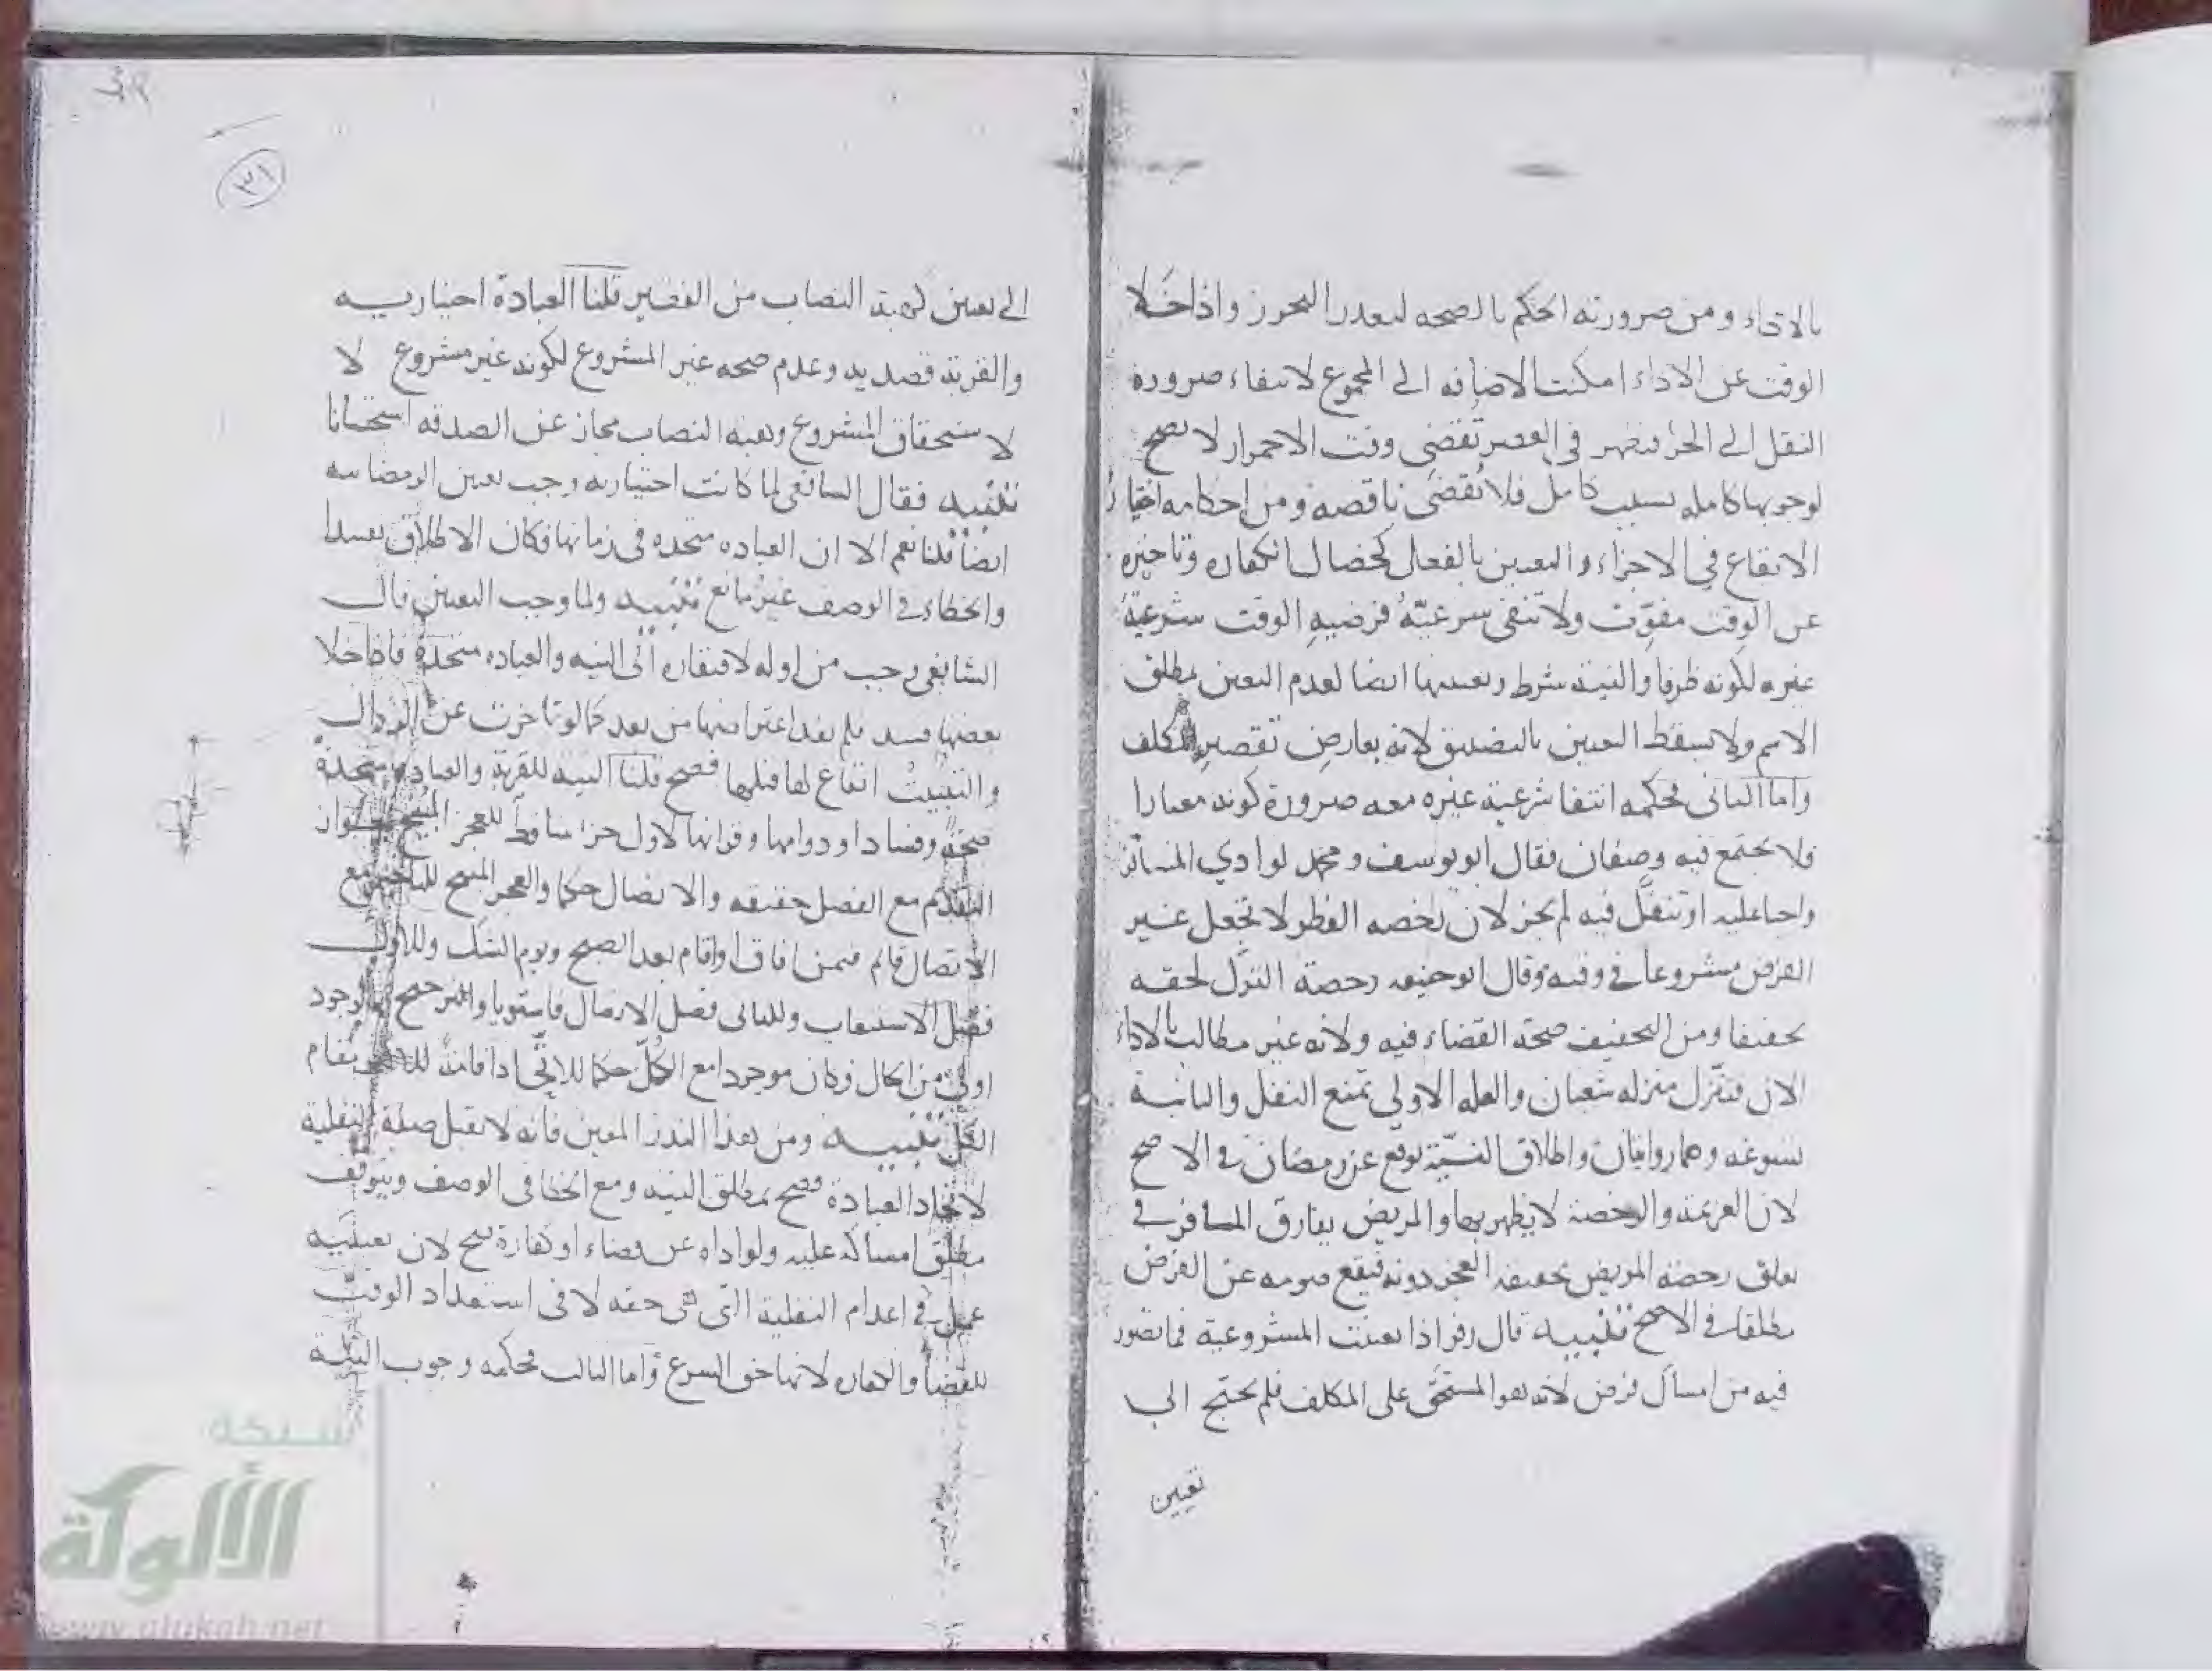 بالاداء ومن ضرورته الحكم بالصحه لتعدد التحرز واذا خلا
الوقت عن الاداء امكنت الاضافه الى المجموع لانتفاء ضرورة
النقل الى الجزء فيظهر في العصر تقضى وقت الاحمرار لا تصح
لوجوبها كامله بسبب كامل فلا تقضى ناقصه ومن احكامه اختيار
الايقاع في الاجزاء والتعيين بالفعل كخصال الكفاره وتاخيره
عن الوقت مفوّت ولا تنفى شرعيّةُ فرضيهِ الوقت شرعيةَ
غيره لكونه ظرفا والنية شرط وتعيينها ايضا لعدم التعين بمطلق
الاسم ولا يسقط التعيين بالتضييق لانه بعارض تقصير المكلف
واما الثانى فحكمه انتفا شرعية غيره معه ضرورة كونه معيارا
فلا يجتمع فيه وصفان فقال ابو يوسف ومحمد لو ادي المسافر
واجبا عليه او تنفّل فيه لم يجز لان رخصه الفطر لا تجعل غير
الفرض مشروعا في وقته وقال ابو حنيفه رخصة الترك لحقه
تخفيفا ومن التخفيف صحة القضاء فيه ولانه غير مطالب بالاداء
الان فتنزّل منزله شعبان والعله الاولي تمنع النفل والثانية
تسوغه وهما روايتان واطلاق النيّة توقع عن رمضان في الاصح
لان العزيمة والرخصة لا يظهر بها والمريض يفارق المسافر في
تعلق رخصه المريض بحقيقه العجز دونه فيقع صومه عن الفرض
مطلقا في الاصح تنبيه قال زفر اذا تعينت المشروعية فما تصور
فيه من امساك فرض لانه هو المستحق على المكلف فلم يحتج الى
تعيين
٣١
الى تعيين كهبة النصاب من الفقير قلنا العبادة اختياريه
والقربة قصديه وعدم صحه غير المشروع لكونه غير مشروع لا
لاستحقاق المشروع وهبه النصاب مجاز عن الصدقه استحسانا
تنبيه فقال الشافعى لما كانت اختياريه وجب تعيين الرمضانيه
ايضا قلنا نعم الا ان العباده متحده فى زمانها فكان الاطلاق تعيينا
والخطاء في الوصف غير مانع تنبيه ولما وجب التعيين قال
الشافعى وجب من اوله لافتقاره الى النيه والعباده متحدة فاذا خلا
بعضها فسد فلم يفد اعتراضها من بعد كما لو تاخرت عن الزوال
والتبييت ايقاع لها قبلها فصح قلنا النيه للقربة والعباده متحدة
صحة وفسادا ودوامها وقرانها لاول جزء ساقط للعجز المبيح لجواز
التقدم مع الفصل حقيقه والاتصال حكما والعجز المبيح للتاخير مع
الاتصال قائم فيمن افاق او اقام بعد الصبح ويوم الشك وللاول
فضل الاستيعاب وللثانى فضل الاتصال فاستويا والترجيح بالوجود
اولى من الحال وكان موجودا مع الكل حكما للاتحاد اقامة للاكثر مقام
الكل تنبيه ومن هذا النذر المعين فانه لا تقبل صفة النفلية
لاتحاد العبادة فصح بمطلق النيه ومع الخطا فى الوصف ويتوقف
مطلق امساكه عليه ولو اداه عن قضاء او كفارة صح لان تعيينه
عمل في اعدام النفلية التى هى حقه لا فى استعداد الوقت
للقضا والكفاره لانها حق الشرع واما الثالث فحكمه وجوب النية
شبكة
الألوكة
www.alukah.net